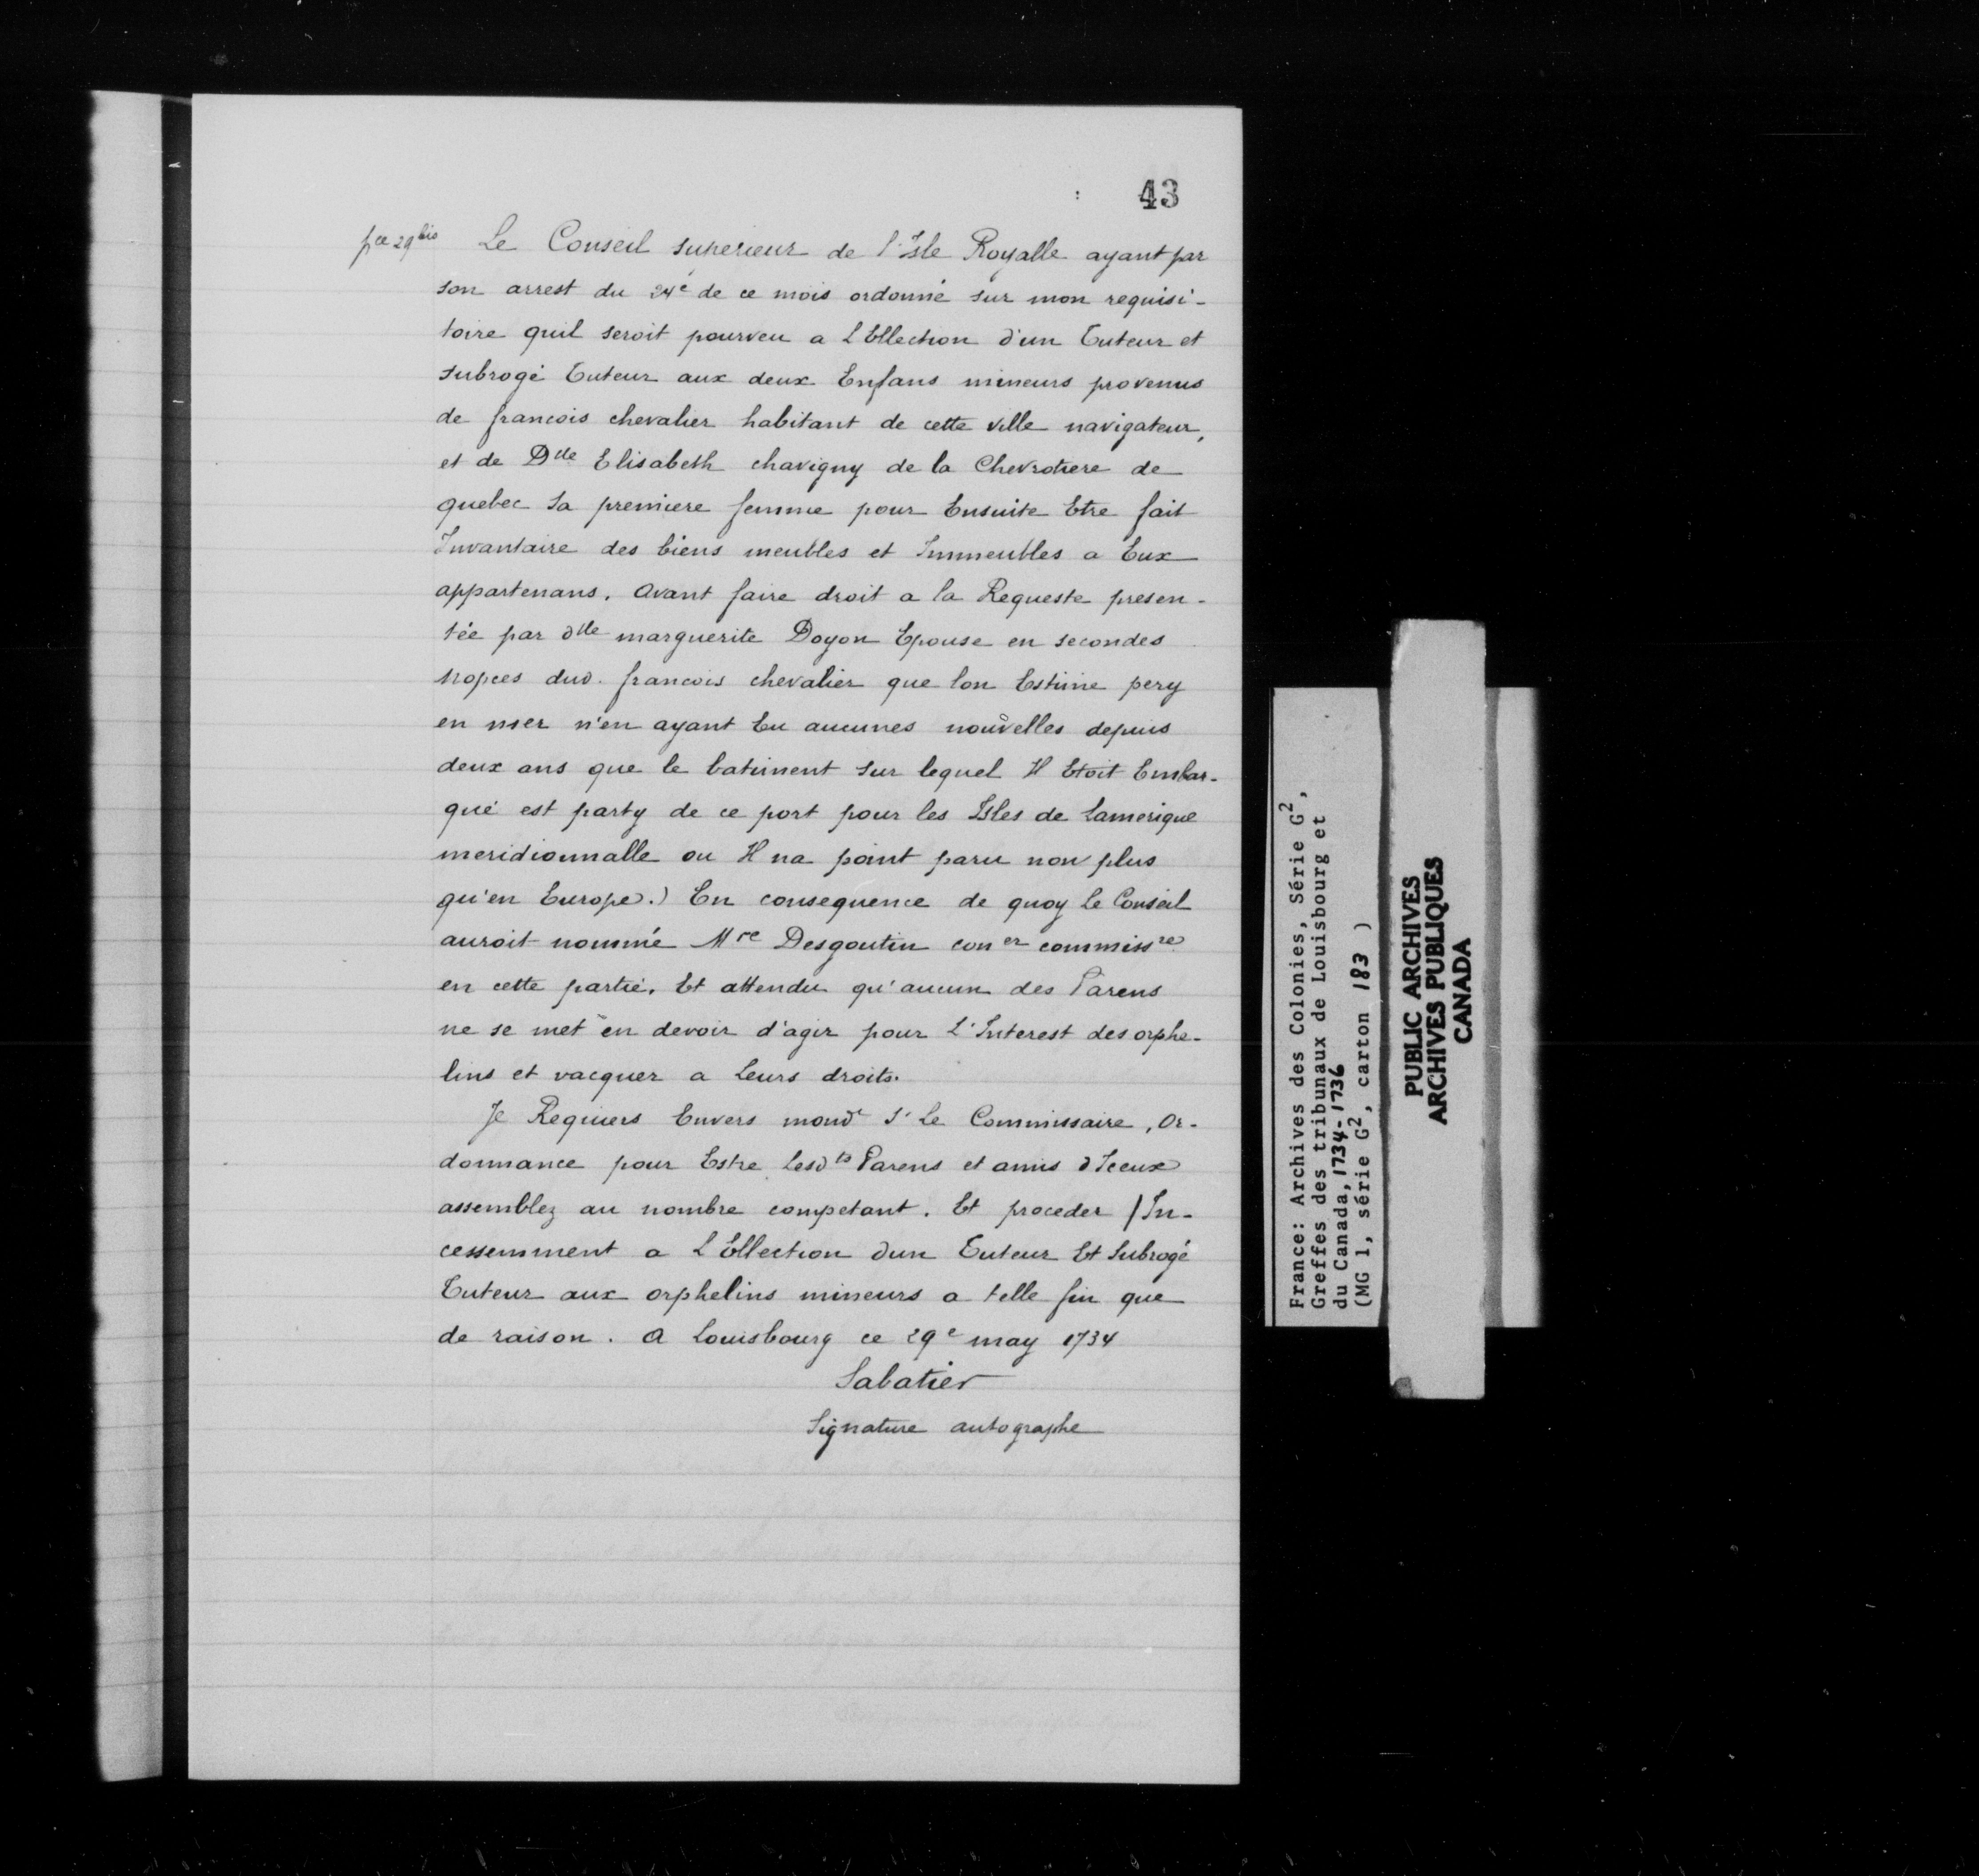 43
pce 29 bis Le Conseil superieur de l'Isle Royalle ayant par
son arrest du 24e de ce mois ordonné sur mon requisi-
toire quil seroit pourveu a L'Ellection d'un Tuteur et
subrogé Tuteur aux deux Enfans mineurs provenus
de francois chevalier habitant de cette ville navigateur,
et de Dlle Elisabeth chavigny de la Chevrotiere de
quebec sa premiere femme pour Ensuite Etre fait
Invantaire des biens meubles et Immeubles a Eux
appartenans. Avant faire droit a la Requeste presen-
tée par dlle marguerite Doyon Epouse en secondes
nopces dud. francois chevalier que lon Estime pery
en mer n'en ayant Eu aucunes nouvelles depuis
deux ans que le batiment sur lequel Il Etoit Embar-
qué est party de ce port pour les Isles de Lamerique
meridionnalle ou Il na point paru non plus
qu'en Europe.) En consequence de quoy Le Conseil
auroit nommé Mre Desgoutin coner commissre
en cette partie. Et attendu qu'aucun des Parens
ne se met en devoir d'agir pour L'Interest des orphe-
lins et vacquer a Leurs droits.
Je Requiers Envers mondt Sr Le Commissaire, Or-
donnance pour Estre Lesdts Parens et amis d'Iceux
assemblez au nombre competant. Et proceder / In-
cessemment a L'Ellection dun Tuteur Et Subrogé
Tuteur aux orphelins mineurs a telle fin que
de raison. A Louisbourg ce 29e may 1734
Sabatier
Signature autographe
France: Archives des Colonies, Série G2,
Greffes des tribunaux de Louisbourg et
du Canada, 1734-1736
(MG 1, série G2, carton 183 )
PUBLIC ARCHIVES
ARCHIVES PUBLIQUES
CANADA